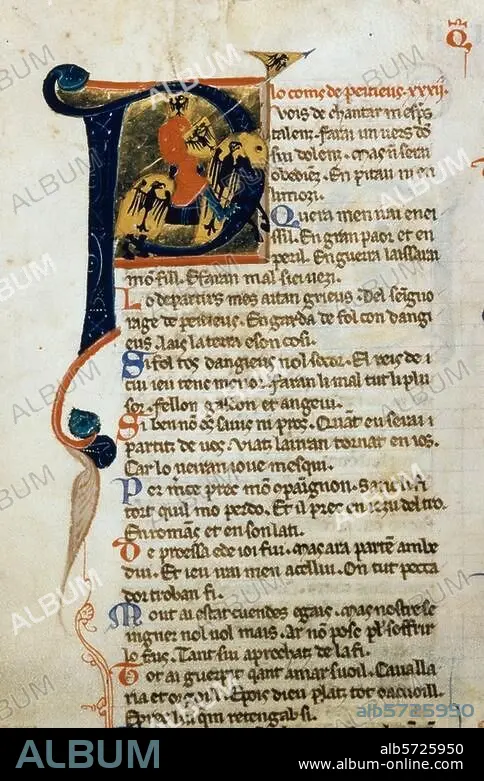 lo coms de peitieus. xxxii.
vois de chantar mes pres
talenz. farai un vers dõ
sui dolenz. Mas nõ serai
obediẽz. En pitau ni en
limozi.
Quera men nai en ei
ssil. En gran paor et en
peril. En guerra laissarai
mõ fill. E faran mal siei uezi.
Lo departirs mes aitan grieus. Del seigno
rage de peitieus. En garda de folcon dangi
eus. lais la terra e son cosi.
Si folcos dangieus nol socor. El reis de
cui ieu tenc menor. Faran li mal tut li plu
sor. fellon gascon et angeui.
Si ben nõ es sauis ni pros. Quãt eu serai
partitz de uos. Viatz lauran tornat en ios.
Car lo ueiran ioue mesqui.
Per merce prec mõ conpaignon. Sanc li fi
tort quil mo perdo. Et il prec en iezu del tro.
En romans et en son lati.
De proessa e de ioi fui. Mas ara partẽ ambe
dui. Et ieu nai men a cellui. On tut pecca
dor troban fi.
Mout ai estat cuendes e gais. Mas nostre se
igner nol uol mais. Ar nõ posc pl' soffrir
lo fais. Tant sui aprochatz de la fi.
Tot ai guerpit qant amar suoil. Caualla
ria et orgoill. E pois dieu platz tot o acuoill.
E prec li qui retengab si.
ALBUM
alb5725990
ALBUM
alb5725950
www.album-online.com